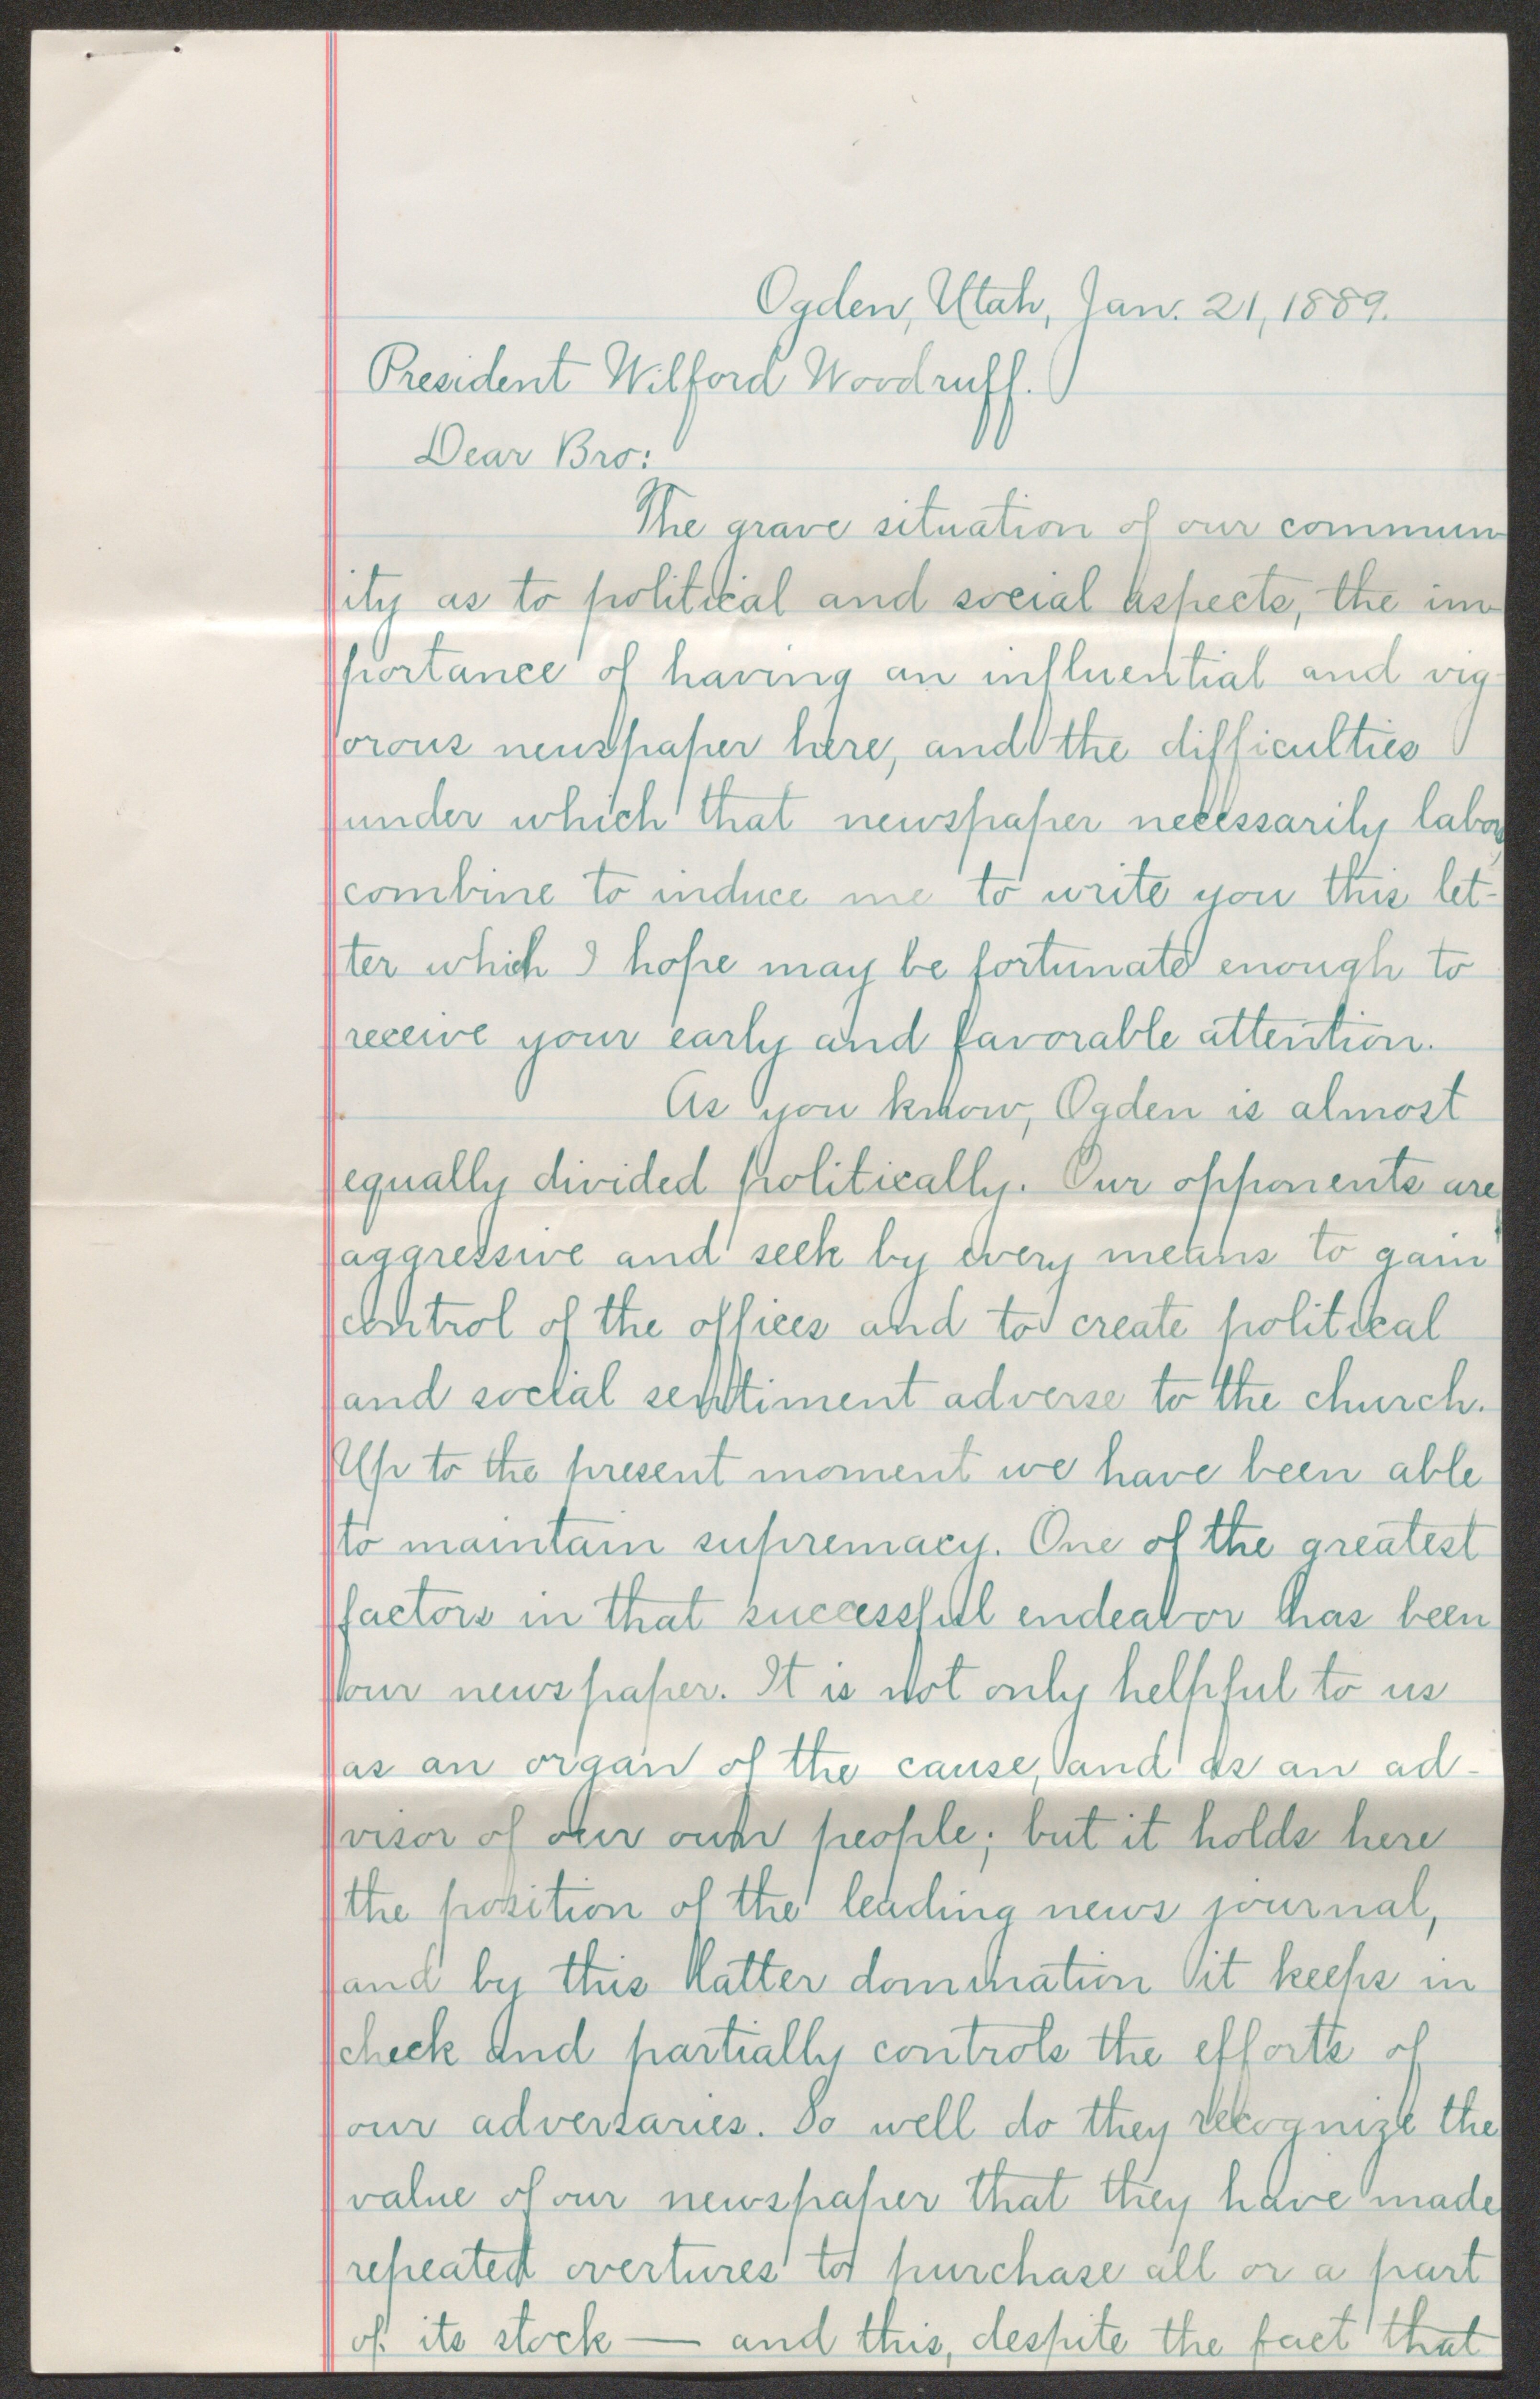 Ogden, Utah, Jan. 21, 1889.
President Wilford Woodruff.
Dear Bro:
The grave situation of our commun-
ity as to political and social aspects, the im-
portance of having an influential and vig-
orous newspaper here, and the difficulties
under which that newspaper necessarily labors,
combine to induce me to write you this let-
ter which I hope may be fortunate enough to
receive your early and favorable attention.
As you know, Ogden is almost
equally divided politically. Our opponents are
aggressive and seek by every means to gain
control of the offices and to create political
and social sentiment adverse to the church.
Up to the present moment we have been able
to maintain supremacy. One of the greatest
factors in that successful endeavor has been
our newspaper. It is not only helpful to us
as an organ of the cause, and as an ad-
visor of our own people; but it holds here
the position of the leading news journal,
and by this latter domination it keeps in
check and partially controls the efforts of
our adversaries. So well do they recognize the
value of our newspaper that they have made
repeated overtures to purchase all or a part
of its stock — and this, despite the fact that